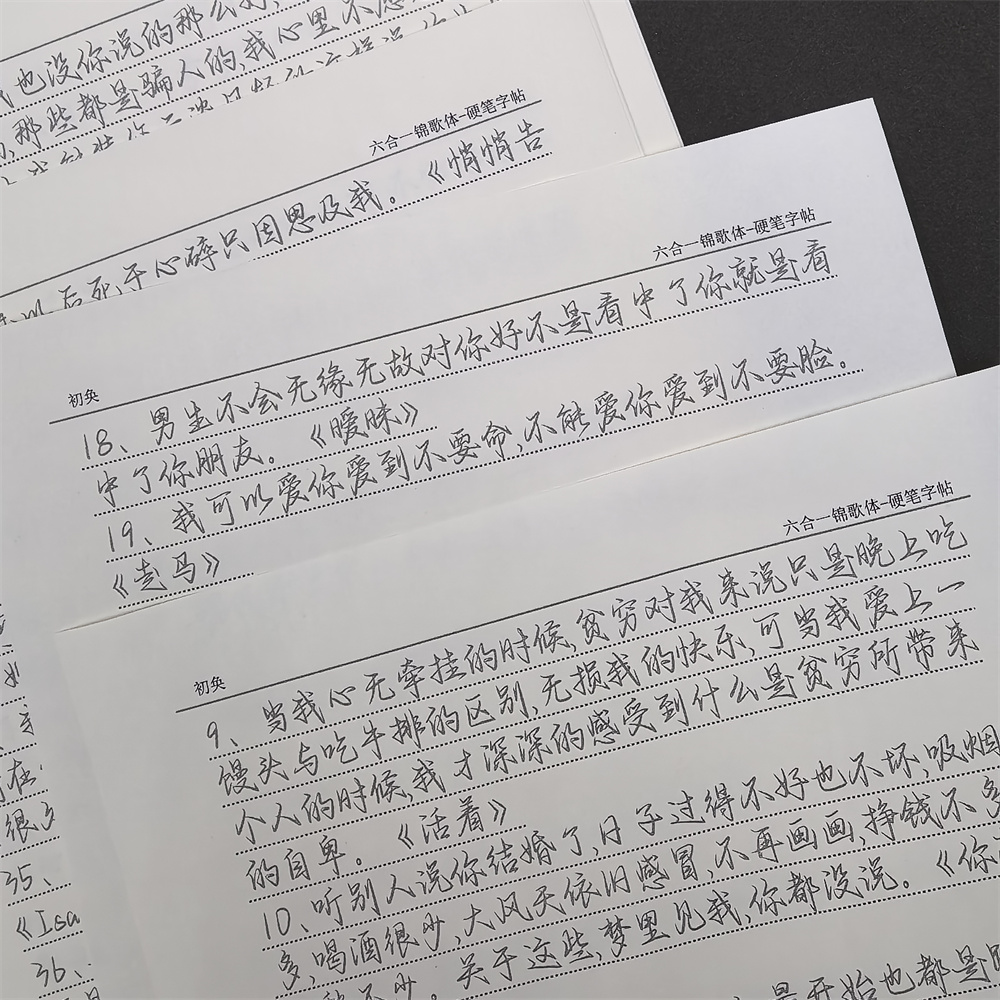 也没你说的那么好,
那些都是骗人的,我心里不愿
六合一锦歌体-硬笔字帖
以后死于心碎只因思及我。《悄悄告
六合一锦歌体-硬笔字帖
初奂
18、男生不会无缘无故对你好不是看中了你就是看
中了你朋友。《暧昧》
19、我可以爱你爱到不要命,不能爱你爱到不要脸。
《走马》
在
很多
35、
《Isa
36、
六合一锦歌体-硬笔字帖
初奂
9、当我心无牵挂的时候,贫穷对我来说只是晚上吃
馒头与吃牛排的区别,无损我的快乐,可当我爱上一
个人的时候,我才深深的感受到什么是贫穷所带来
的自卑。《活着》
10、听别人说你结婚了,日子过得不好也不坏,吸烟
多,喝酒很少,大风天依旧感冒,不再画画,挣钱不多
不少。关于这些,梦里见我,你都没说。《你
开始也都是